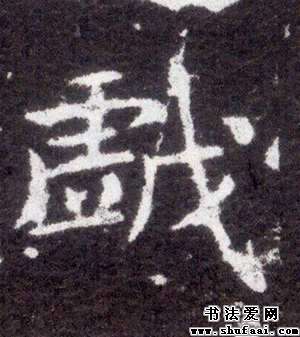 戲
书法爱网
www.shufaai.com